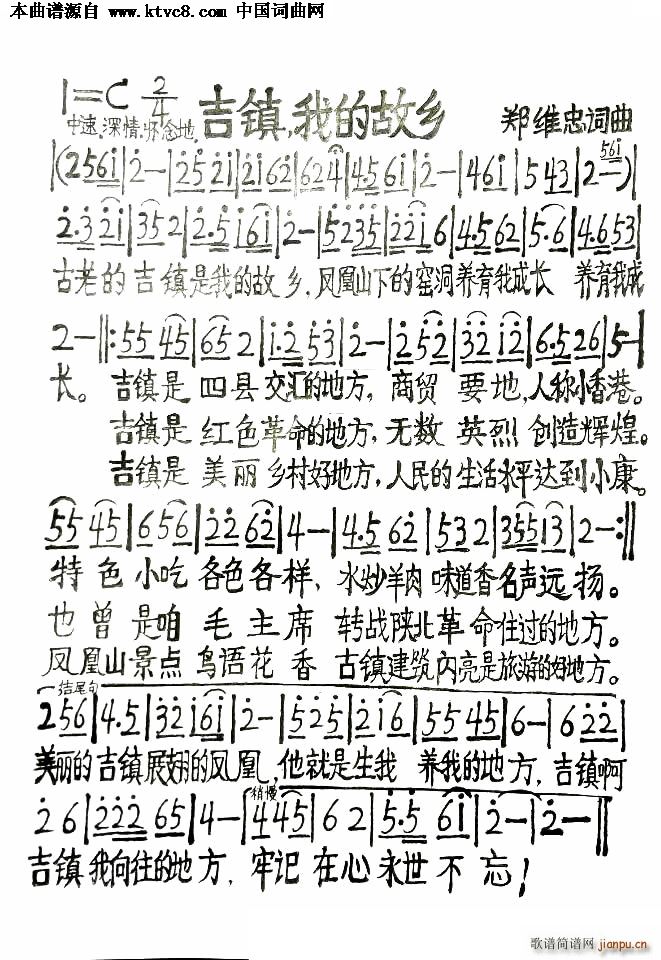 本曲谱源自 www.ktvc8.com 中国词曲网
1=C 2/4 吉镇,我的故乡 郑维忠词曲
中速.深情.怀念地.
|(2561|2-|2521|2162|624|4561|2-|461|543|2-)| 561
2·321|352|2·5161|2-|5235|2216|4·562|5·6|4·653|
古老的吉镇是我的故乡,凤凰山下的窑洞养育我成长 养育我成
2-‖:5545|652|1·253|2-|252|3212|6·526|5-|
长。吉镇是四县交汇的地方,商贸要地,人称小香港。
吉镇是红色革命的地方,无数英烈创造辉煌。
吉镇是美丽乡村好地方,人民的生活水平达到小康。
5545|656|2262|4-|4·562|532|35513|2-:‖
特色小吃各色各样,水炒羊肉味道香名声远扬。
也曾是咱毛主席转战陕北革命住过的地方。
凤凰山景点鸟语花香古镇建筑闪亮是旅游的好地方。
结尾句
256|4·5|32161|2-|525|216|5545|6-|622|
美丽的吉镇展翅的凤凰,他就是生我养我的地方,吉镇啊
26|22265|4-|445|62|5·561|2-|2-‖
稍慢
吉镇我向往的地方,牢记在心永世不忘!
歌谱简谱网
jianpu.cn